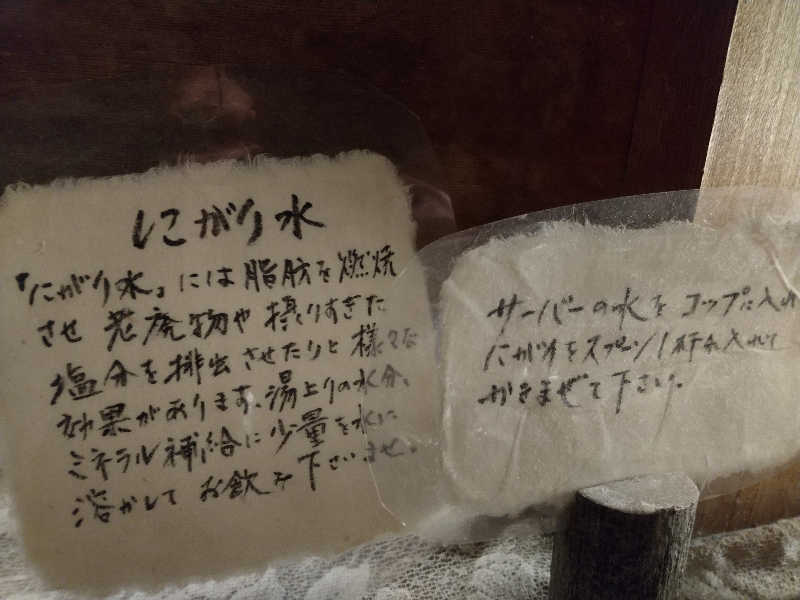 にがり水
「にがり水」には脂肪を燃焼
させ老廃物や摂りすぎた
塩分を排出させたりと様々な
効果があります。湯上りの水分、
ミネラル補給に少量を水に
溶かしてお飲み下さいませ。
サーバーの水をコップに入れ
にがりをスプーン1杯入れて
かきまぜて下さい。